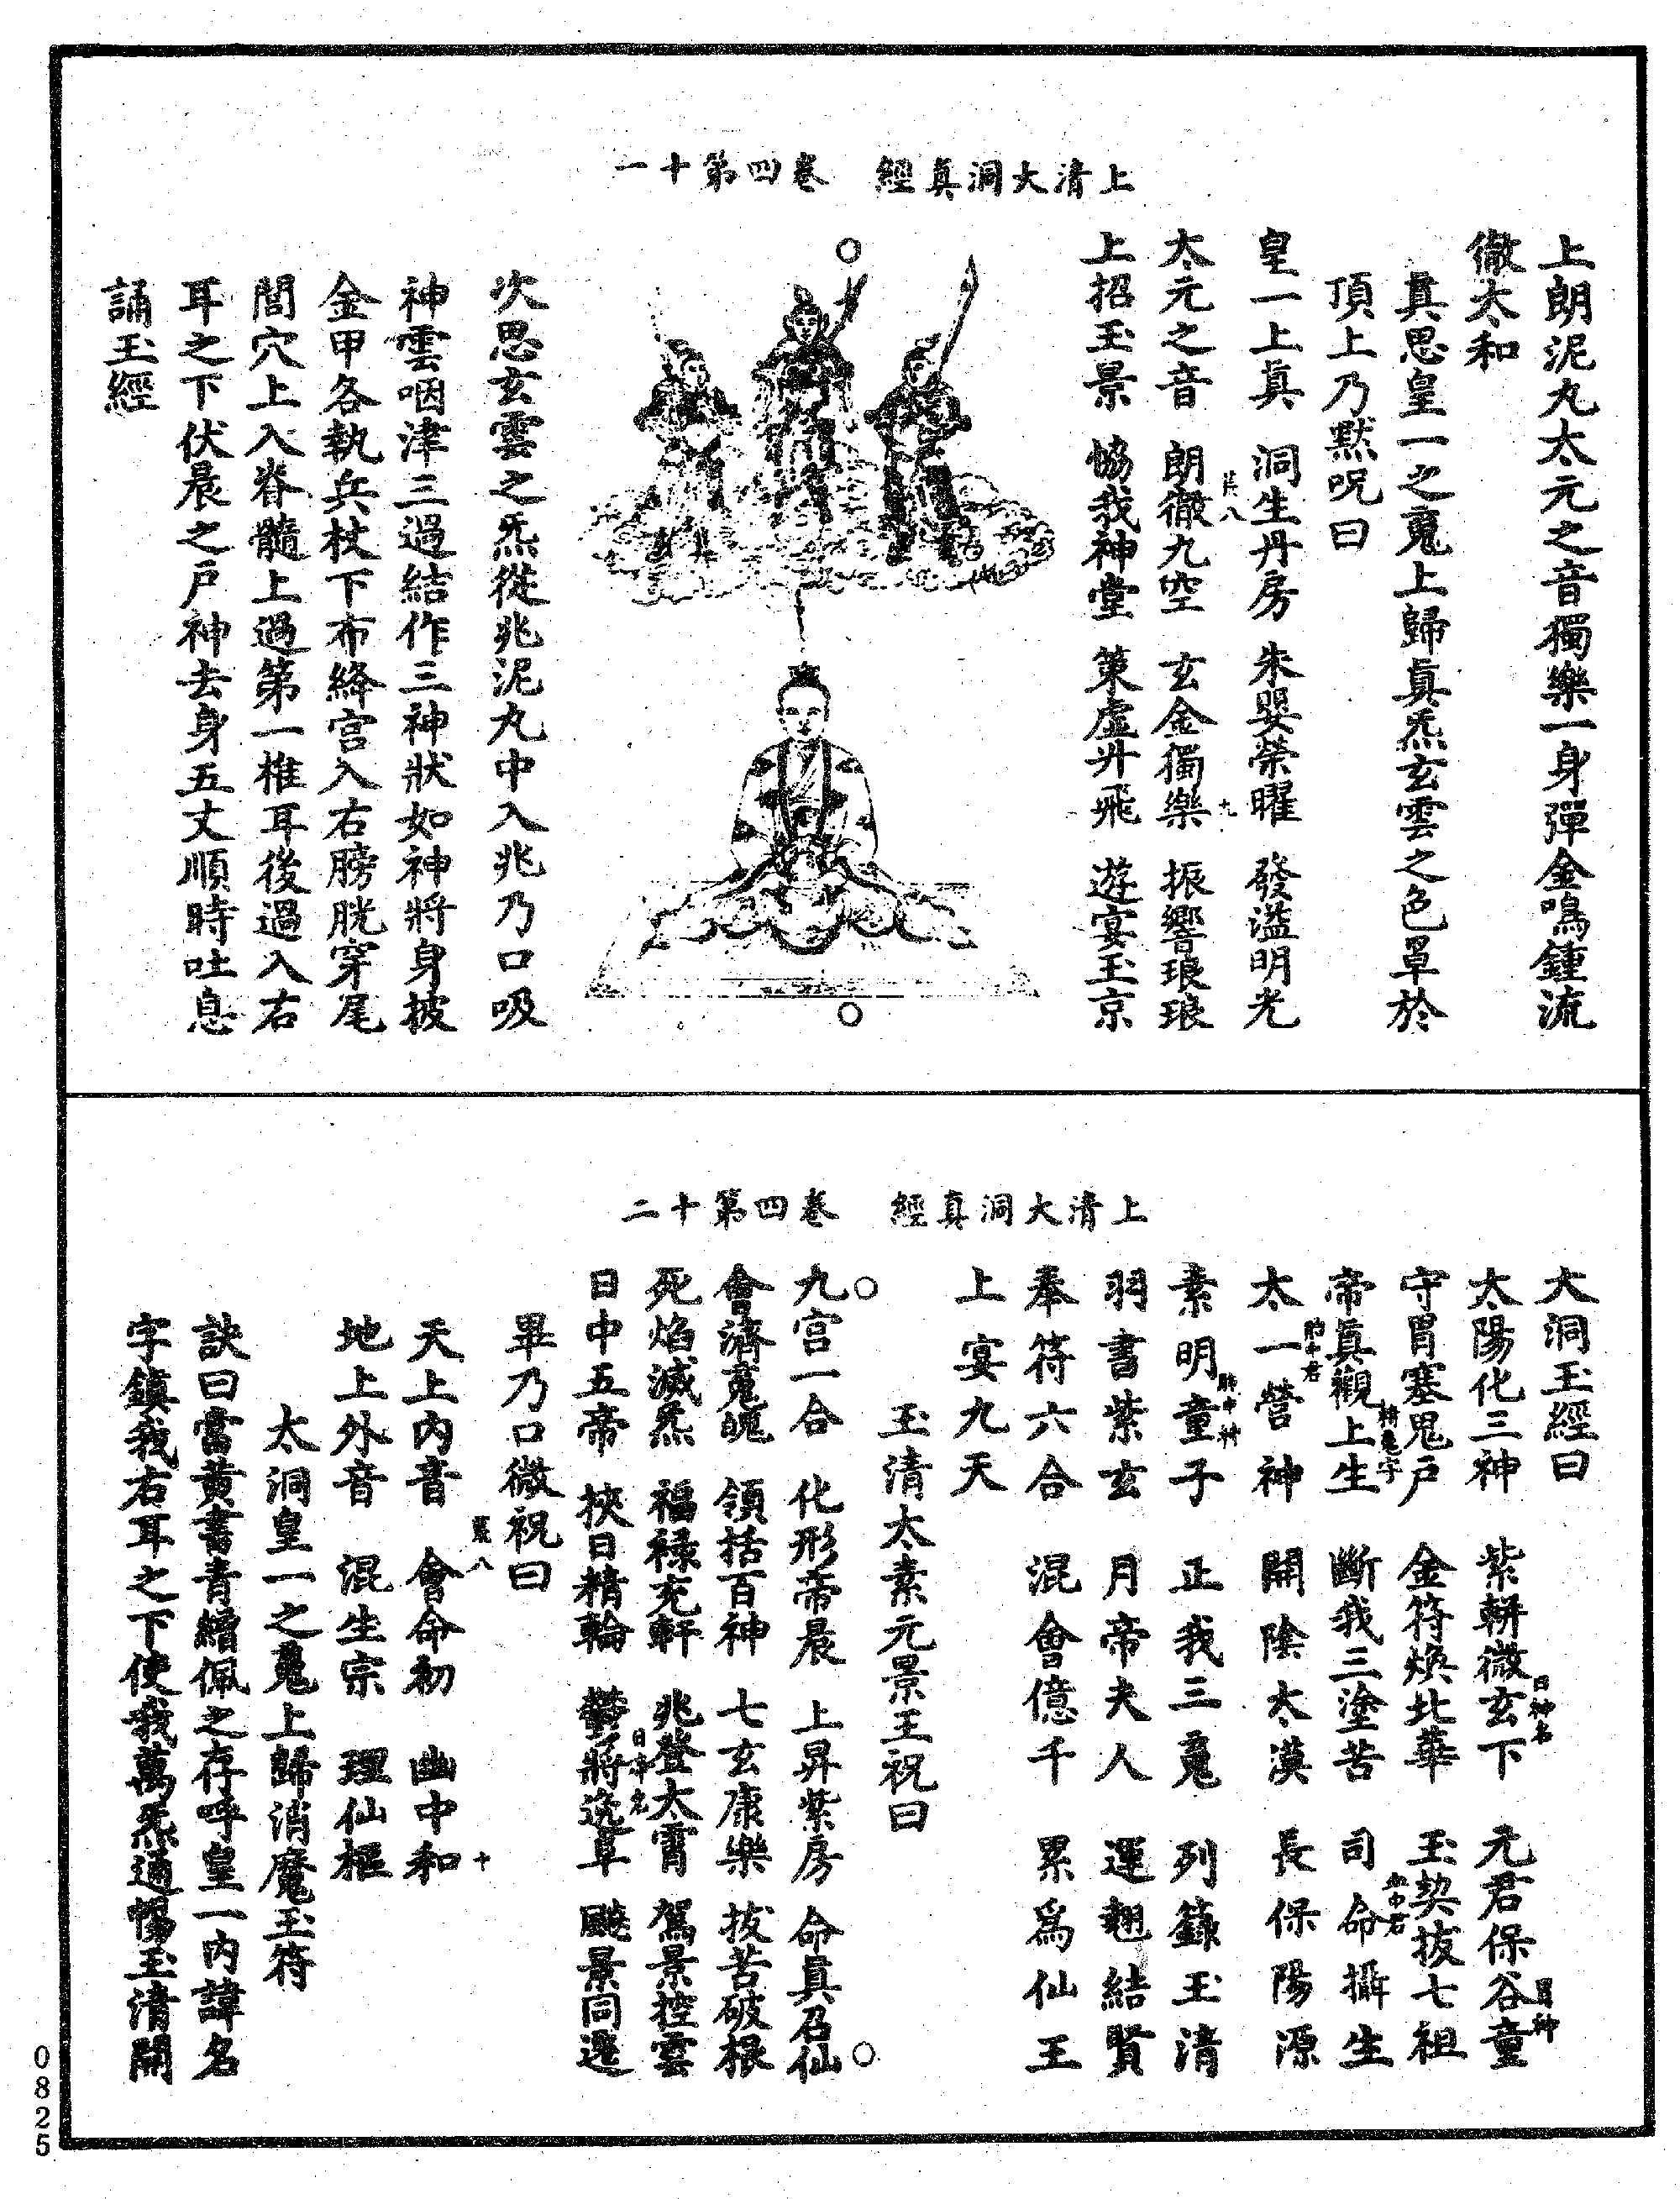 上清大洞真經　卷四第十一
上朗泥丸太元之音獨樂一身彈金鳴鍾流
徹太和
真思皇一之䰟上歸真炁玄雲之色罩於
頂上乃默呪曰
皇一上真　洞生丹房　朱嬰榮曜　發溢明光
太元之音　朗徹九空　玄金獨樂　振響琅琅
上招玉景　恊我神堂　策虛升飛　遊宴玉京
次思玄雲之炁從兆泥丸中入兆乃口吸
神雲咽津三過結作三神狀如神將身披
金甲各執兵杖下布絳宮入右膀胱穿尾
閭穴上入脊髓上過第一椎耳後過入右
耳之下伏晨之戶神去身五丈順時吐息
誦玉經
上清大洞真經　卷四第十二
大洞玉經曰
太陽化三神　紫輧微玄下日神名　元君保谷童胃神
守胃塞鬼戶　金符煥北華　玉契拔七祖
帝真觀上生精䰟字　斷我三塗苦　司命攝生命中君
太一營神胎中君　開陰太漠　長保陽源
素明童子肺中神　正我三䰟　列籙玉清
羽書紫玄　月帝夫人　運趐結賢
奉符六合　混會億千　累爲仙王
上宴九天
玉清太素元景王祝曰
九宮一合　化形帝晨　上昇紫房　命真召仙
會濟䰟魄　領括百神　七玄康樂　拔苦破根
死焰滅炁　福祿充軒　兆登太霄　駕景控雲
日中五帝　挾日精輪　鬱將逸阜日帝名　飈景同遷
畢乃口微祝曰
天上內音　會命初　幽中和
地上外音　混生宗　理仙樞
太洞皇一之䰟上歸消魔玉符
訣曰當黃書青繒佩之存呼皇一內諱名
字鎮我右耳之下使我萬炁通暢玉清開
0825